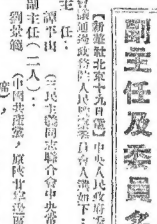 副主任及委員會
【新華社北京十九日電】中央人民政府委
會議通過政務院人民監察委員會人選如下：
主任：
譚平山（三民主義同志聯合會中央常
副主任（二人）：
劉景範（中國共產黨，原陝甘寧邊區
席）。